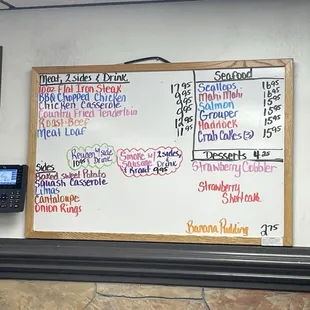 Meat, 2 sides & Drink
10oz Flat Iron Steak 17.95
BBQ Chopped Chicken 9.95
Chicken Casserole 9.95
Country Fried Tenderloin
Roast-Beef 12.95
Meat Loaf 11.95
Sides
Baked sweet Potato
Squash Casserole
Limas
Cantaloupe
Onion Rings
Reuben w/ side
Drink
Smoke w/ 2 sides,
Sausage Drink
& Kraut 9.95
Seafood
Scallops 16.95
Mahi Mahi 16.95
Salmon 15.95
Grouper 15.95
Haddock 15.95
Crab Cakes 15.95
Desserts 4.25
Strawberry Cobbler
Strawberry
Shortcake
Banana Pudding 2.75